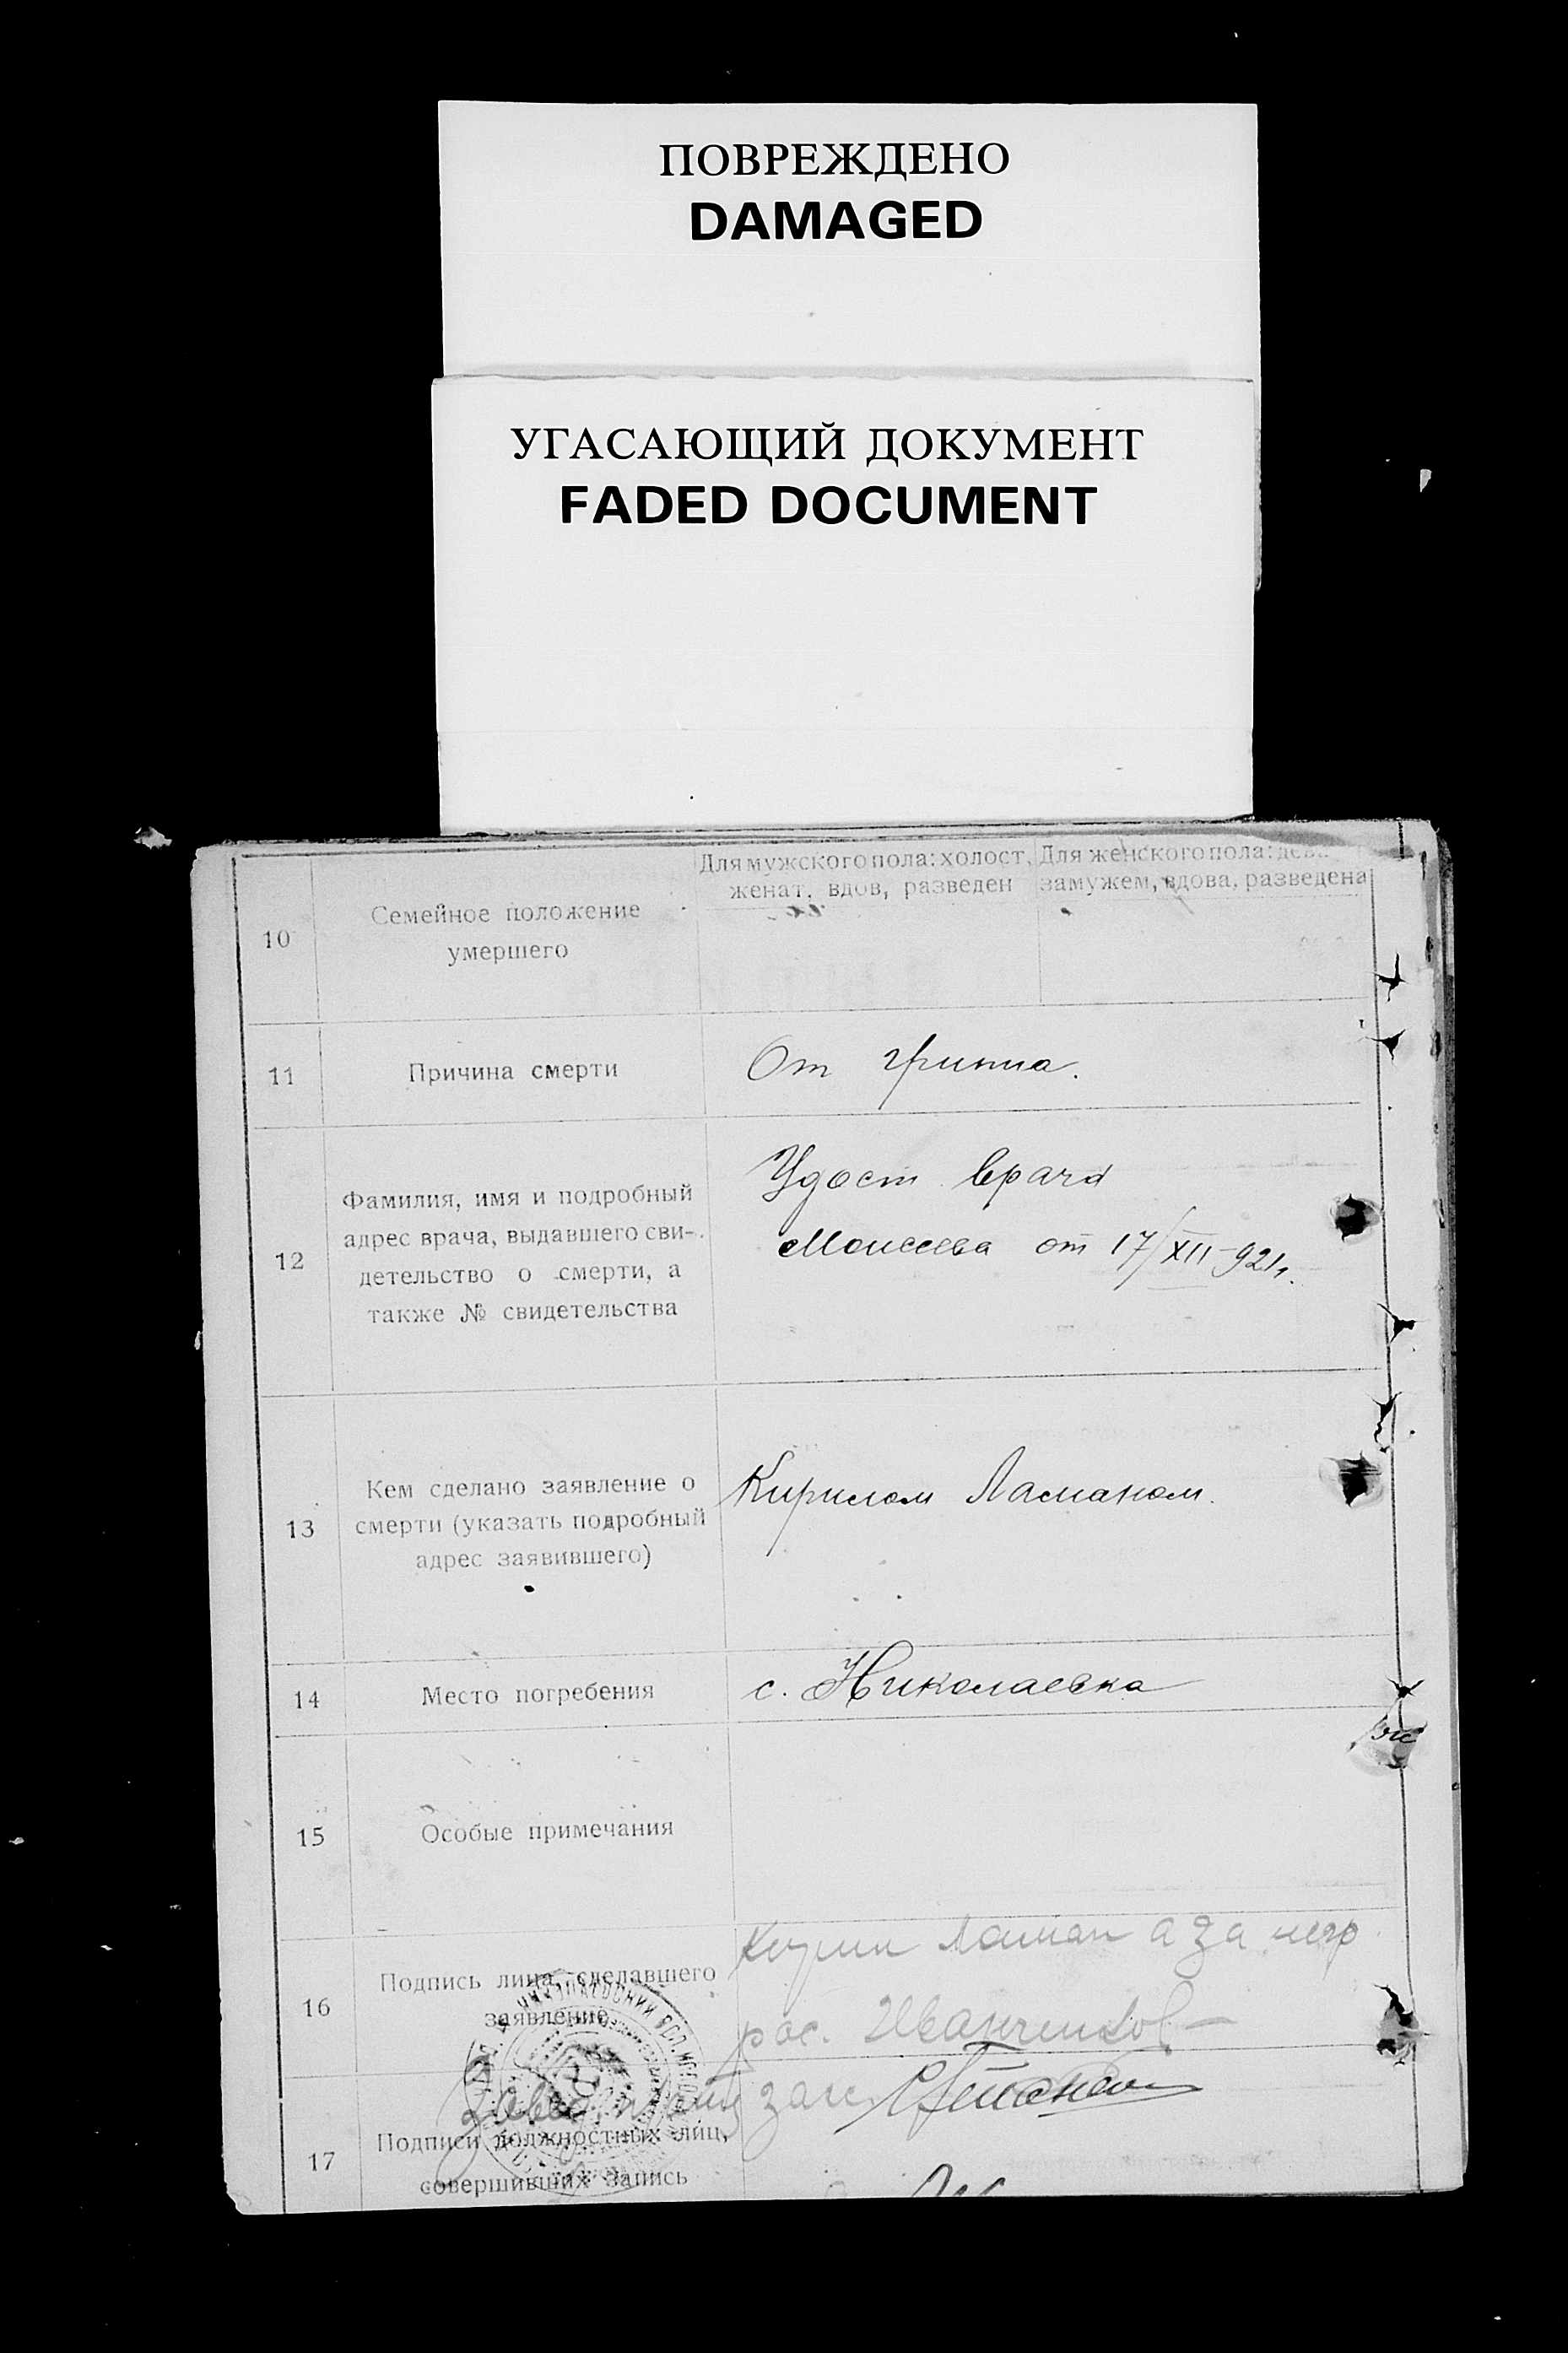 ПОВРЕЖДЕНО
DAMAGED
УГАСАЮЩИЙ ДОКУМЕНТ
FADED DOCUMENT
10
Семейное положение
умершего
Для мужского пола: холост,
женат, вдов, разведен
Для женского пола:
замужем, вдова, разведена
11
Причина смерти
От гриппа.
12
Фамилия, имя и подробный
адрес врача, выдавшего сви-
детельство о смерти, а
также № свидетельства
Удост врача
Моисеева от 17/XII-921г.
13
Кем сделано заявление о
смерти (указать подробный
адрес заявившего)
Кирилом Ламаном.
14
Место погребения
с. Николаевка
15
Особые примечания
16
Подпись лица, сделавшего
заявление
Ламан а за него
рос.
17
Подписи должностных лиц,
совершивших запись